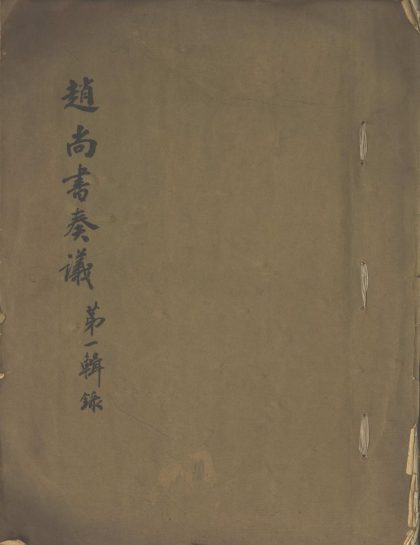 趙尚書奏議 第一輯錄